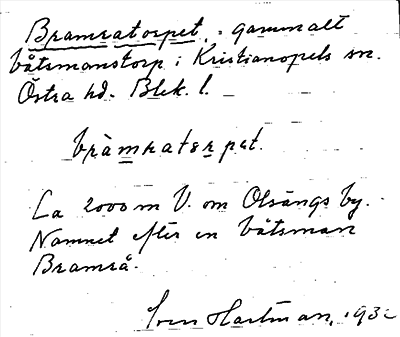 Bramratorpet, gammalt
båtsmanstorp i Kristianopels sn.
Östra hd. Blek. l.
Ca 2000 m V. om Olsängs by.
Namnet efter en båtsman
Bramrå.
Sven Hartman, 193